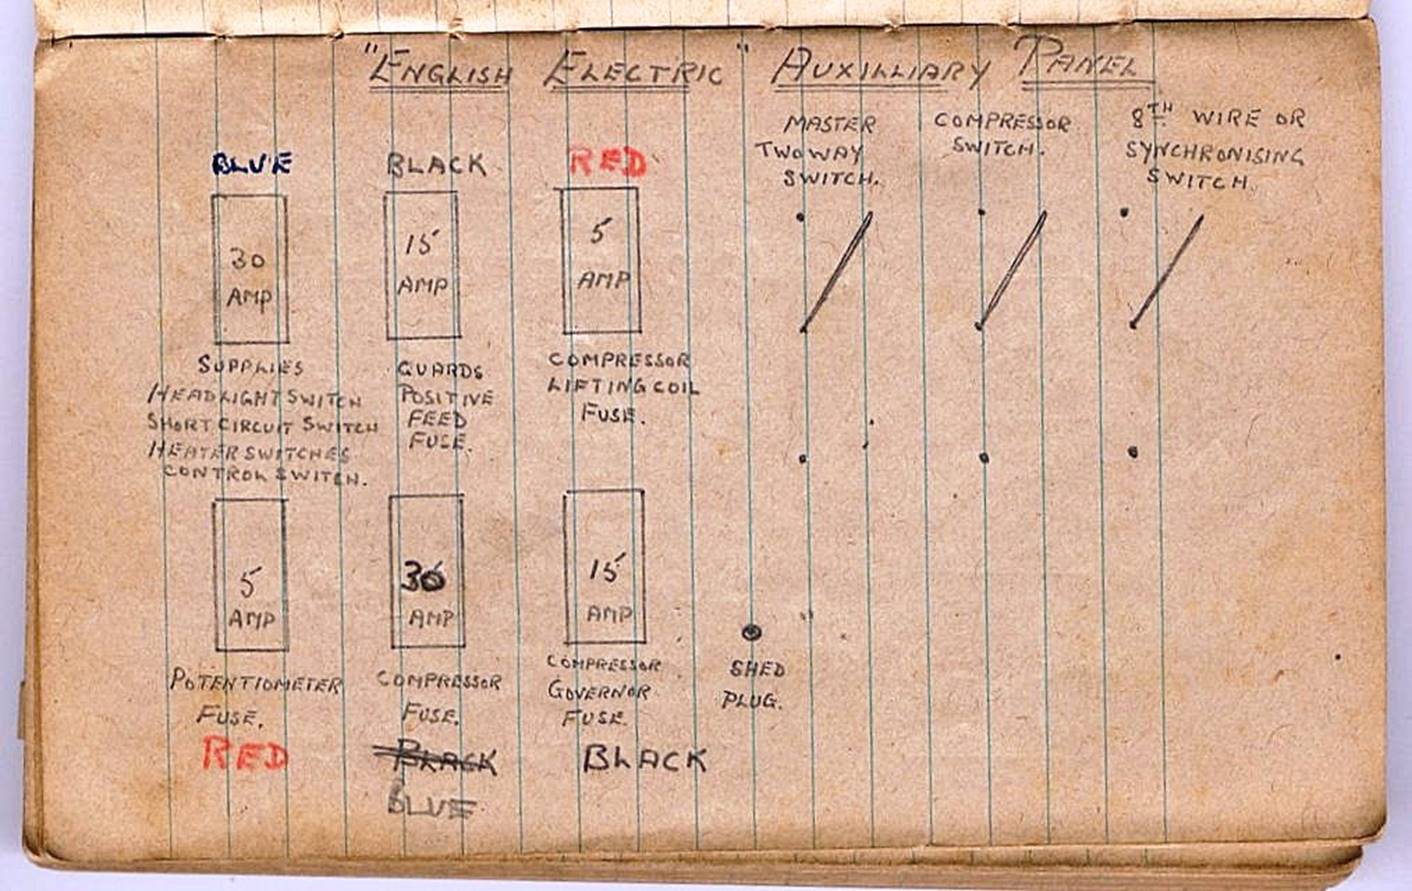 "ENGLISH ELECTRIC" AUXILLIARY PANEL
BLUE
30
AMP
SUPPLIES
HEADLIGHT SWITCH
SHORT CIRCUIT SWITCH
HEATER SWITCHES
CONTROL SWITCH.
BLACK
15
AMP
GUARDS
POSITIVE
FEED
FUSE.
RED
5
AMP
COMPRESSOR
LIFTING COIL
FUSE.
MASTER
TWO WAY
SWITCH.
COMPRESSOR
SWITCH.
8TH WIRE OR
SYNCHRONISING
SWITCH.
5
AMP
POTENTIOMETER
FUSE.
RED
30
AMP
COMPRESSOR
FUSE.
BLACK
BLUE
15
AMP
COMPRESSOR
GOVERNOR
FUSE.
BLACK
SHED
PLUG.